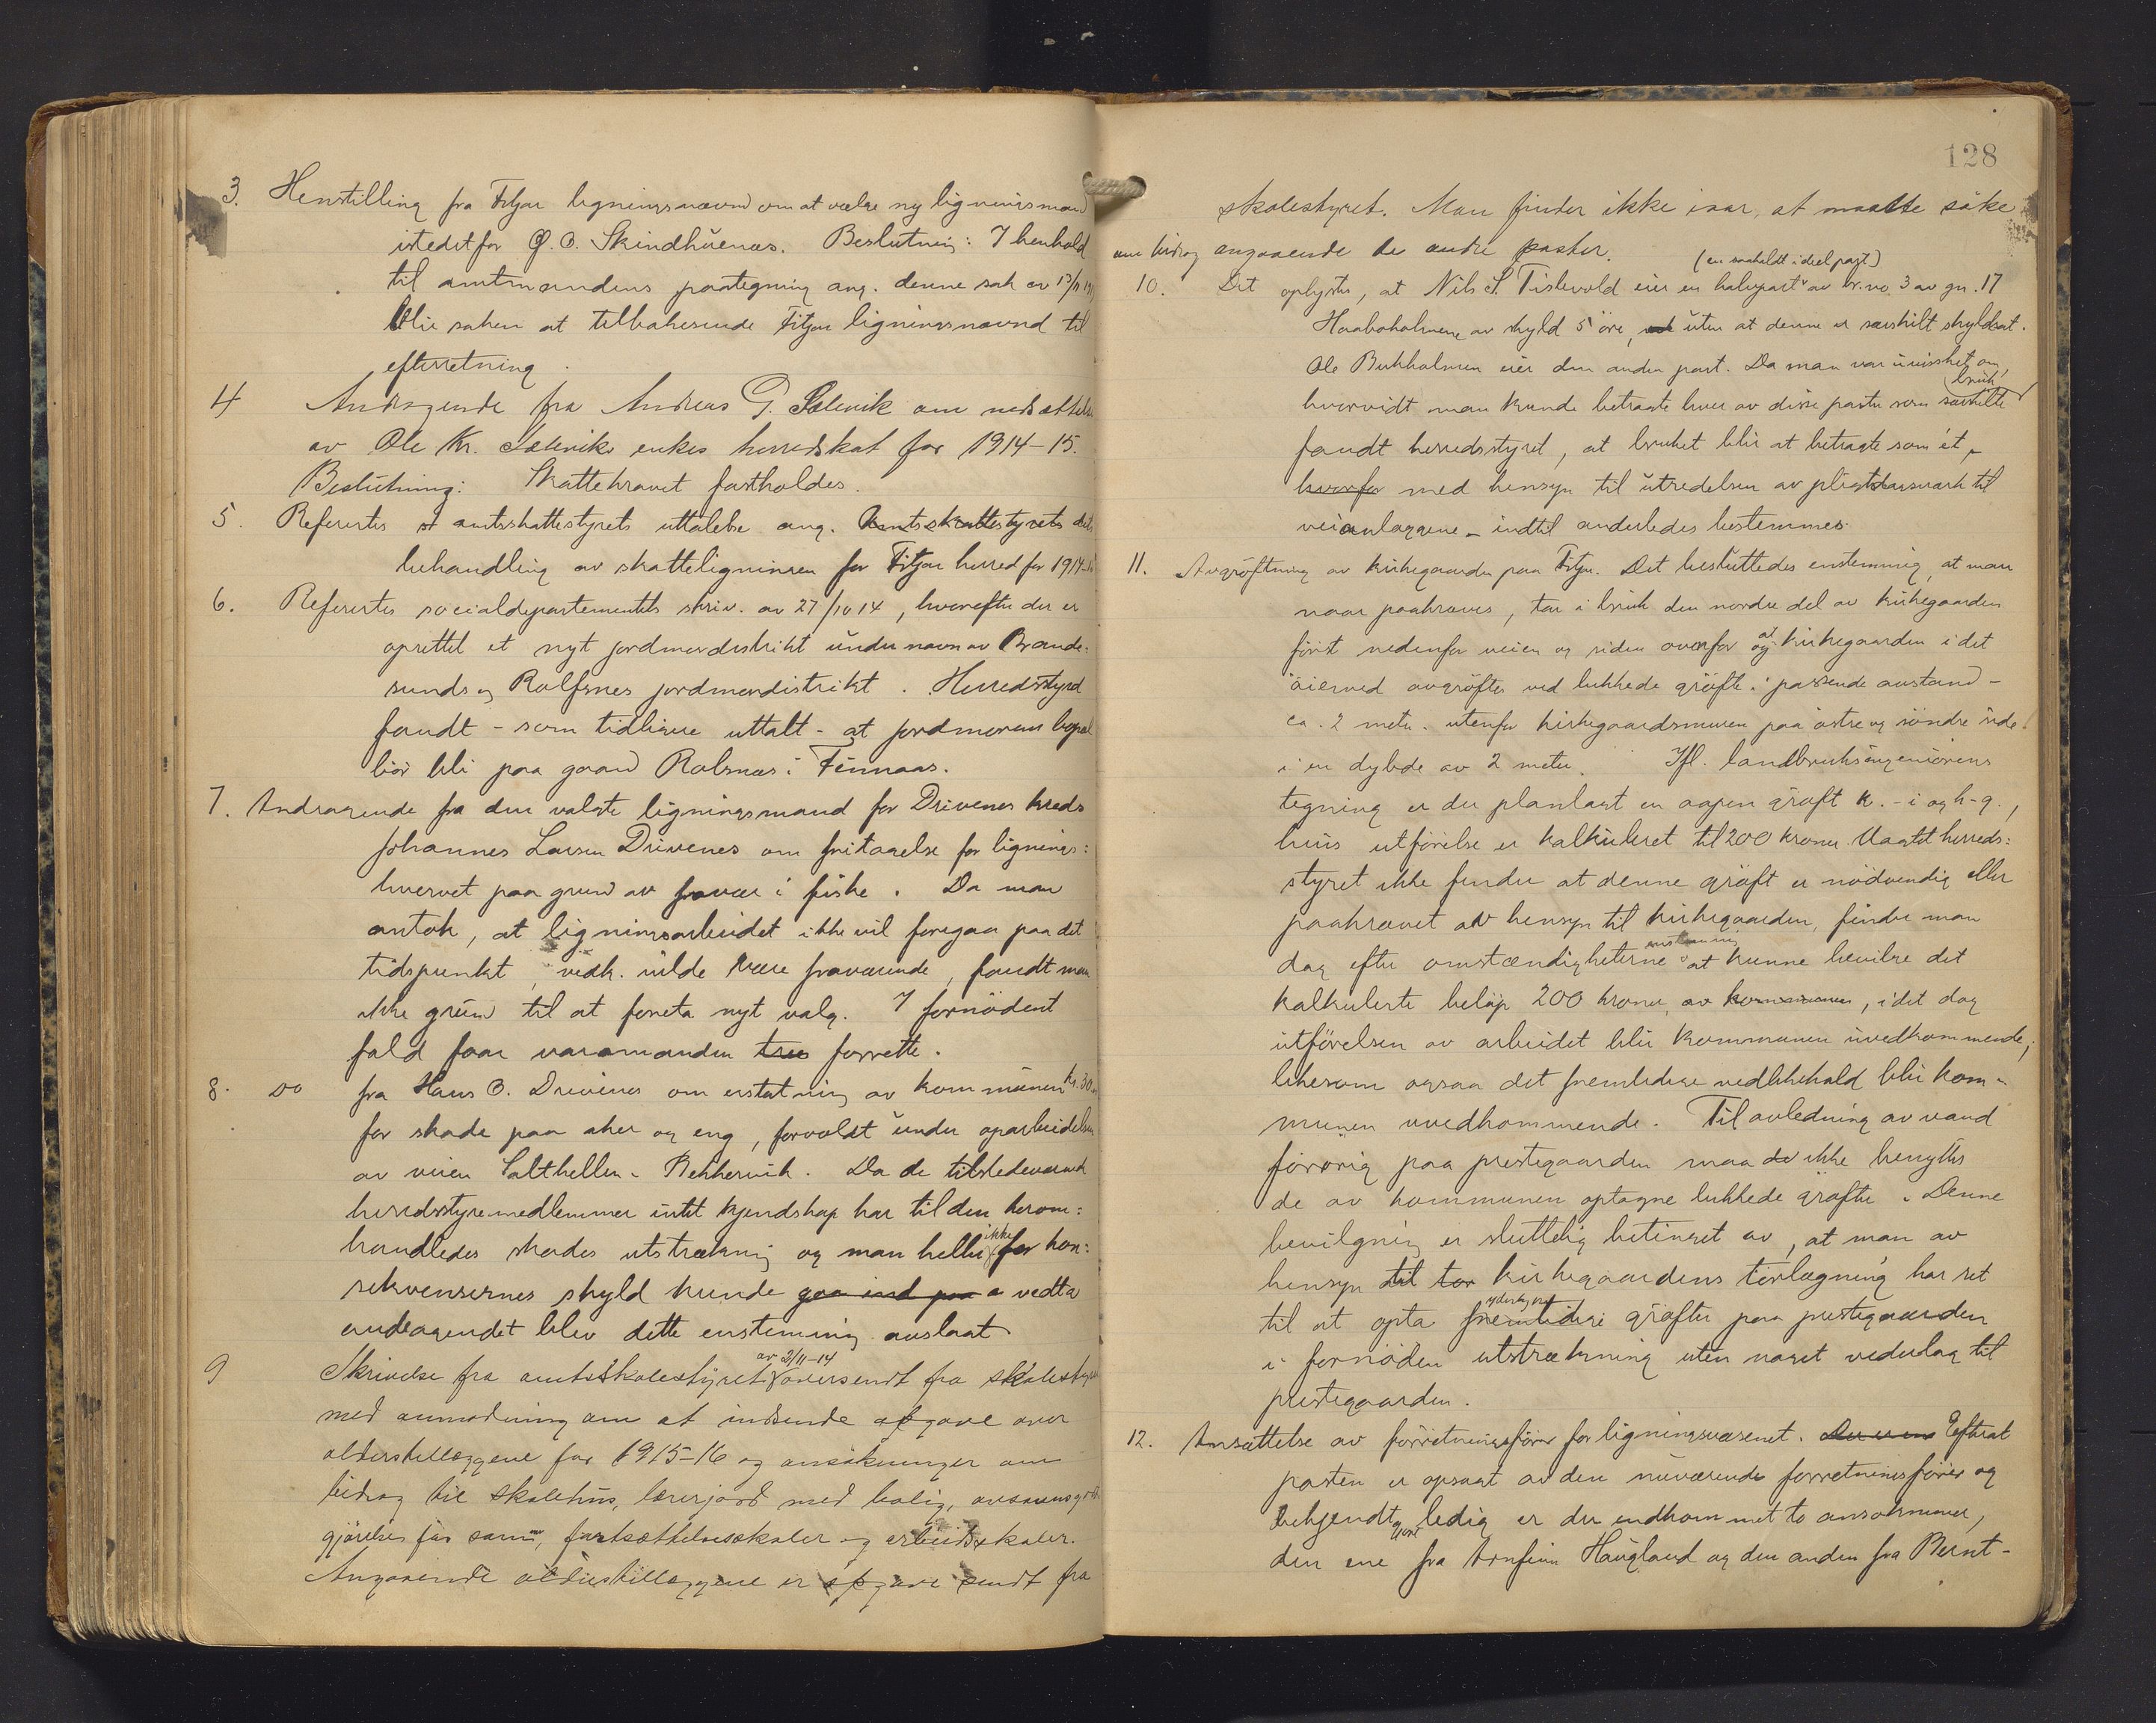 3. Henstilling fra Fitjar ligningsnævnd om at vælge ny ligningsmand
istedetfor O. O. Skindhuenæs. Beslutning: I henhold
til amtmandens paategning ang. denne sak av 13/11 19
blir saken at tilbakesende Fitjar ligningsnævnd til
efterretning.
4 Andragende fra Andreas G. Sælevik om nedsættelse
av Ole Kr. Sæleviks enkes herredskat for 1914-15.
Beslutning: Skattekravet fastholdes.
5. Refertes amtsskattestyrets uttalelse ang. Amtsskattestyrets dets
behandling av skatteligningen for Fitjar herred for 1914-15
6. Refertes socialdepartementets skriv. av 27/10 14, hvorefter der er
oprettet et nyt jordmordistrikt under navn av Brande:
sunds og Rolfsnes jordmordistrikt. Herredsstyret
fandt - som tidligere uttalt - at jordmorens bopæl
bør bli paa gaard Rolsnæs i Finnaas.
7. Andragende fra den valgte ligningsmand for Drivenes kreds
Johannes Larsen Drivenes om fritagelse for lignings:
hvervet paa grund av fravær i fiske. Da man
antok, at ligningsarbeidet ikke vil foregaa paa det
tidspunkt, vedk. vilde være fraværende, fandt man
ikke grund til at foreta nyt valg. I fornødent
fald faar varamanden forrette.
8. Do fra Hans O. Drivenes om erstatning av kommunen kr. 30
for skade paa aker og eng, forvoldt under oparbeidelsen
av veien Salthellen - Bekkervik. Da de tilstedeværende
herredsstyremedlemmer intet kjendskap har til den herom:
handledes skades utstrækning og man heller ikke for kon:
sekvensernes skyld kunde gaa ind paa a vedta
andragendet blev dette enstemmig avslaat
9 Skrivelse fra amtsskolestyret av 2/11-14 oversendt fra skolestyret
med anmodning om at indsende opgave over
alderstillæggene for 1915-16 og ansøkninger om
bidrag til skolehus, lærerjord med bolig,
gjørelse for samme, fortsættelsesskoler og arbeidsskoler.
Angaaende alderstillæggene er opgave sendt fra
128
skolestyret. Man finder ikke ivar, at maatte søke
om bidrag angaaende de andre poster.
(en uskyldt i deel part)
10. Det oplystes, at Nils S. Tislevold eier en halvpart av br.no. 3 av gn. 17
Haaboholmene av skyld 5 øre, uten at denne er særskilt skyldsat.
Ole Bukholmen eier den anden part. Da man var i uvisshet om,
hvorvidt man kunde betragte hver av disse parter som særskilte bruk
fandt herredsstyret, at bruket blir at betragte som ét, -
hvorfor med hensyn til utredelsen av pligtdagsverk til
veianlæggene - indtil anderledes bestemmes.
11. Avgrøftning av kirkegaarden paa Fitjar. Det besluttedes enstemmig, at man
naar paakræves, tar i bruk den nordre del av kirkegaarden
først nedenfor veien og siden ovenfor og at kirkegaarden i det
øiemed avgrøftes ved lukkede grøfter i passende avstand -
ca. 2 meter utenfor kirkegaardsmuren paa østre og søndre side
i en dybde av 2 meter. Ifl. landbruksingeniørens
tegning er der planlagt en aapen grøft k. - i og h-g.,
hvis utførelse er kalkuleret til 200 kroner. Uagtet herreds:
styret ikke finder at denne grøft er nødvendig eller
paakrævet av hensyn til kirkegaarden, finder man
dog efter omstændigheterne enstemmig at kunne bevilge det
kalkulerte beløp 200 kroner, av kommunen, i det dog
utførelsen av arbeidet blir kommunen uvedkommende;
likesom ogsaa det fremtidige vedlikehold blir kom-
munen uvedkommende. Til avledning av vand
forøvrig paa prestegaarden maa ikke benyttes
de av kommunen optagne lukkede grøfter. Denne
bevilgning er sluttelig betinget av, at man av
hensyn til tor kirkegaardens tørlægning har ret
til at opta fremtidige yderligere grøfter paa prestegaarden
i fornøden utstrækning uten noget vederlag til
prestegaarden.
12. Ansættelse av forretningsfører for ligningsvæsenet. Efterat
posten er opsagt av den nuværende forretningsfører og
bekjendtgjort ledig er der indkommet to ansøkninger,
den ene fra Arnfinn Haugland og den anden fra Bernt-